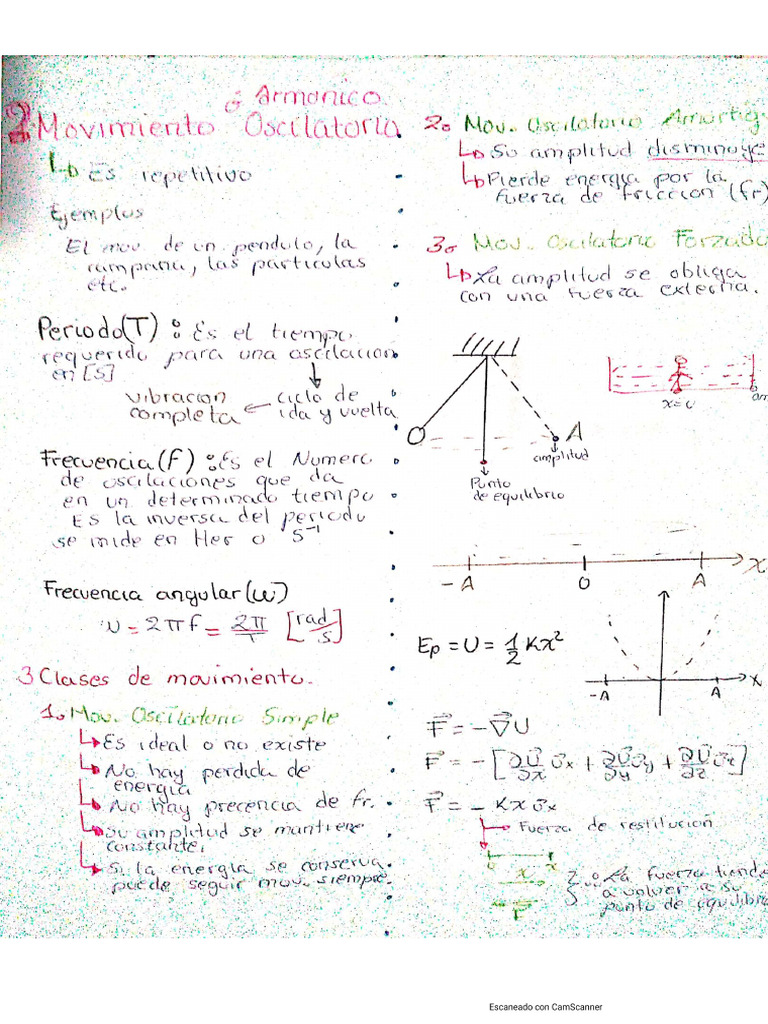 2 Movimiento Oscilatorio
ó Armonico.
↳ Es repetitivo
Ejemplos
El mov de un pendulo, la
campana, las particulas
etc.
Periodo(T) : Es el tiempo
requerido para una oscilacion
en [s]
vibracion completa ← ciclo de ida y vuelta
Frecuencia(f) : Es el Numero
de oscilaciones que da
en un determinado tiempo
Es la inversa del periodo
se mide en Her o s⁻¹
Frecuencia angular(w)
w = 2πf = 2π/T [rad/s]
3 Clases de movimiento.
1. Mov. Oscilatorio Simple
↳ Es ideal o no existe
↳ No hay perdida de
energia
↳ No hay precencia de fr.
↳ Su amplitud se mantiene
constante.
↳ Si la energia se conserva
puede seguir mov. siempre.
2. Mov. Oscilatorio
↳ Su amplitud disminuye
↳ Pierde energia por la
fuerza de friccion (fr)
3. Mov. Oscilatorio Forzado
↳ La amplitud se obliga
con una fuerza externa.
x=0
O
A
amplitud
Punto
de equilibrio
-A O A x
Ep = U = 1/2 Kx²
-A A x
F⃗ = -∇⃗U
F⃗ = -[∂U⃗/∂x u⃗x + ∂U⃗/∂y u⃗y + ∂U⃗/∂z u⃗z]
F⃗ = - Kx u⃗x
↳ Fuerza de restitución
x
F⃗
La fuerza tiende
a volver a su
punto de equilibrio
Escaneado con CamScanner